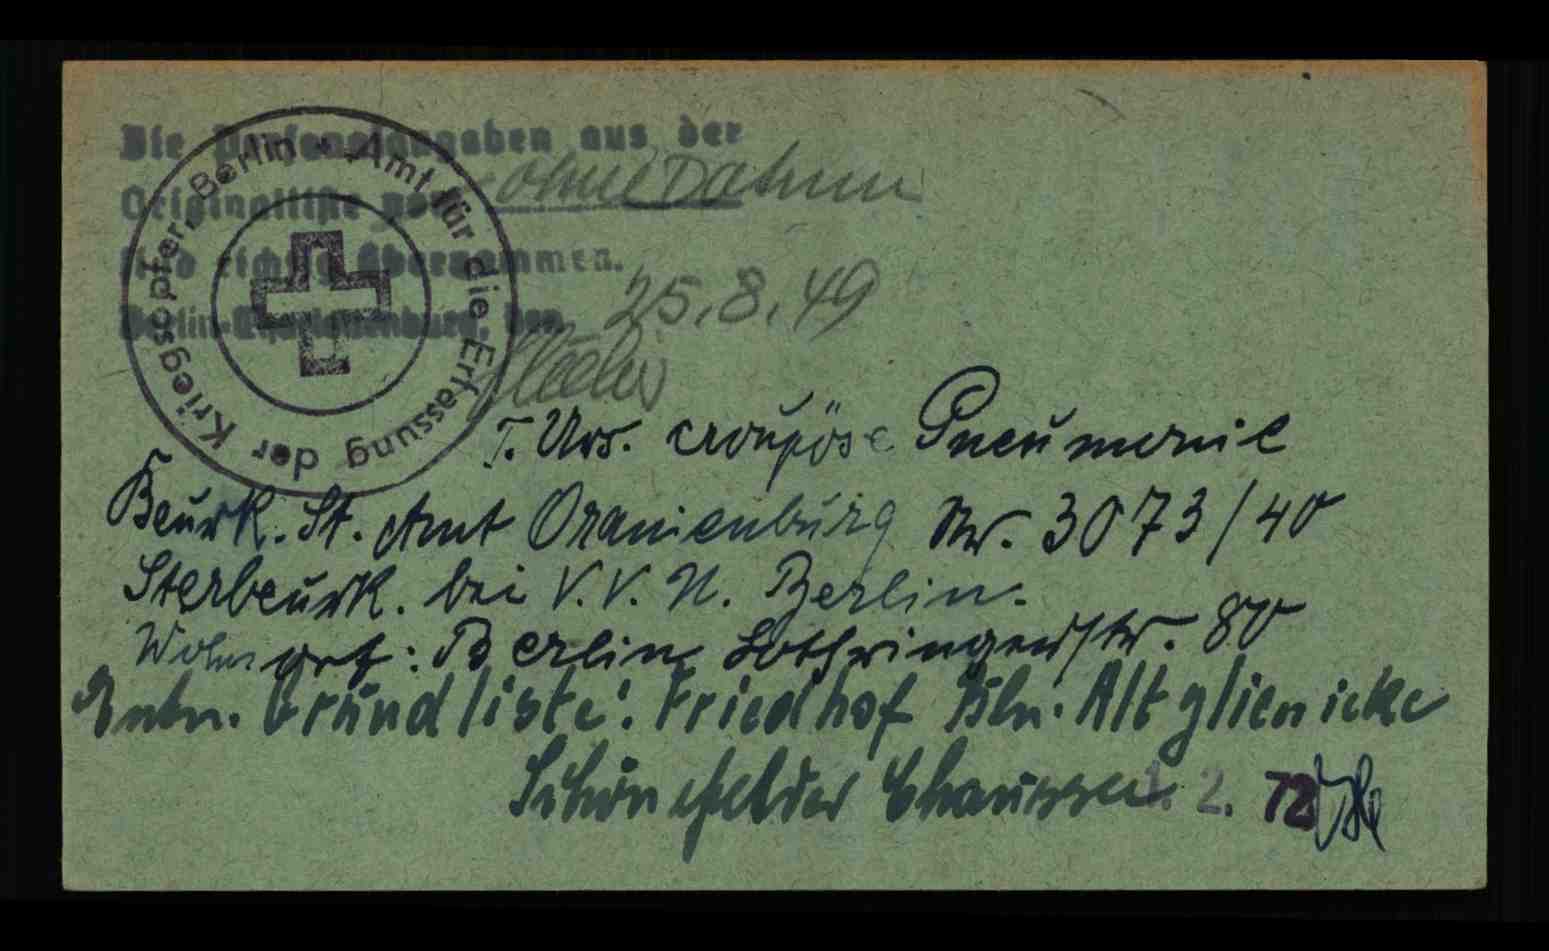 Die Personalangaben aus der
Originalliste von ohne Datum
sind richtig übernommen.
Berlin-Charlottenburg, den 25.8.49
Berlin - Amt für die Erfassung der Kriegsopfer
T. Urs. croupöse Pneumonie
Beurk. St. Amt Oranienburg Nr. 3073/40
Sterbeurk. bei V.V.N. Berlin.
Wohnort: Berlin Lothringerstr. 80
Entn. Grundliste: Friedhof Bln. Altglienicke
Schönefelder Chaussee. 2. 72